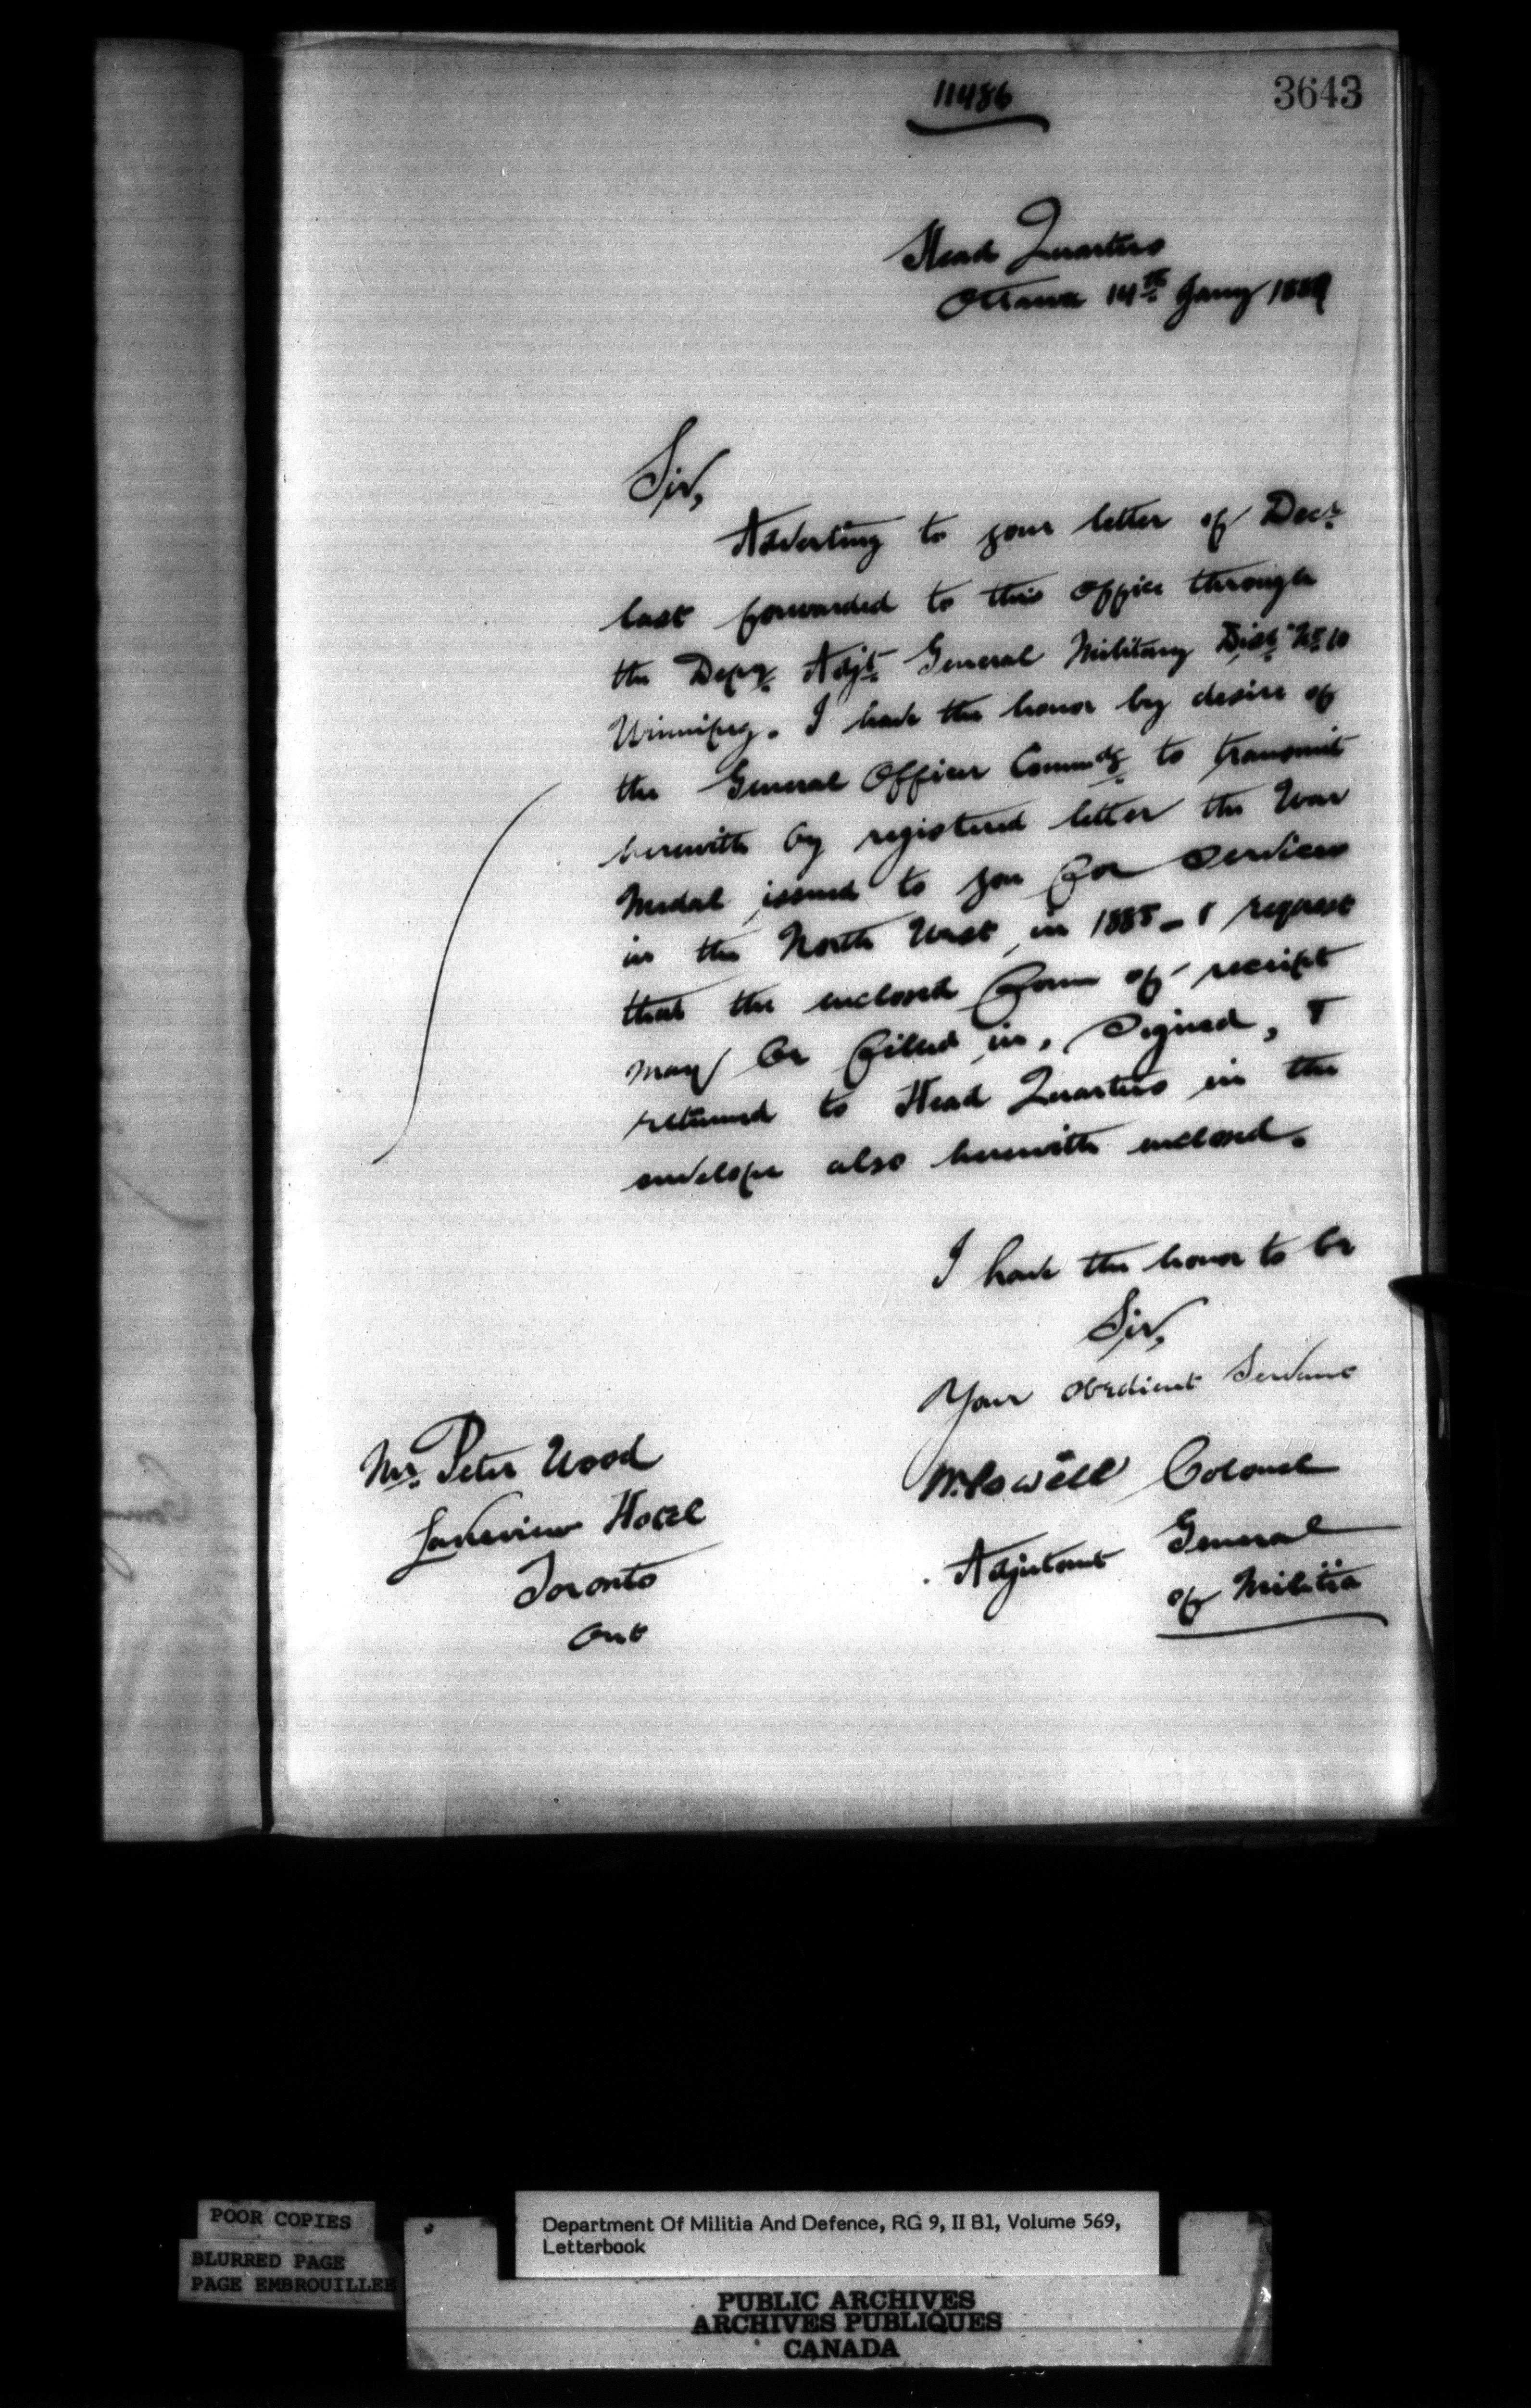 11486
3643
Head Quarters
Ottawa 14th Jany 1889
Sir,
Adverting to your letter of Decr
last forwarded to this office through
the Depy Adjt General Military Dist No 10
Winnipeg. I have the honor by desire of
the General Officer Commdg to transmit
herewith by registered letter the War
Medal issued to you for services
in the North West in 1885 _ & request
that the enclosed form of receipt
may be filled in, signed, &
returned to Head Quarters in the
envelope also herewith enclosed.
I have the honor to be
Sir,
Your obedient Servant
W. Powell Colonel
Adjutant General
of Militia
Mr. Peter Wood
Lakeview Hotel
Toronto
Ont
POOR COPIES
BLURRED PAGE
PAGE EMBROUILLEE
Department Of Militia And Defence, RG 9, II B1, Volume 569,
Letterbook
PUBLIC ARCHIVES
ARCHIVES PUBLIQUES
CANADA